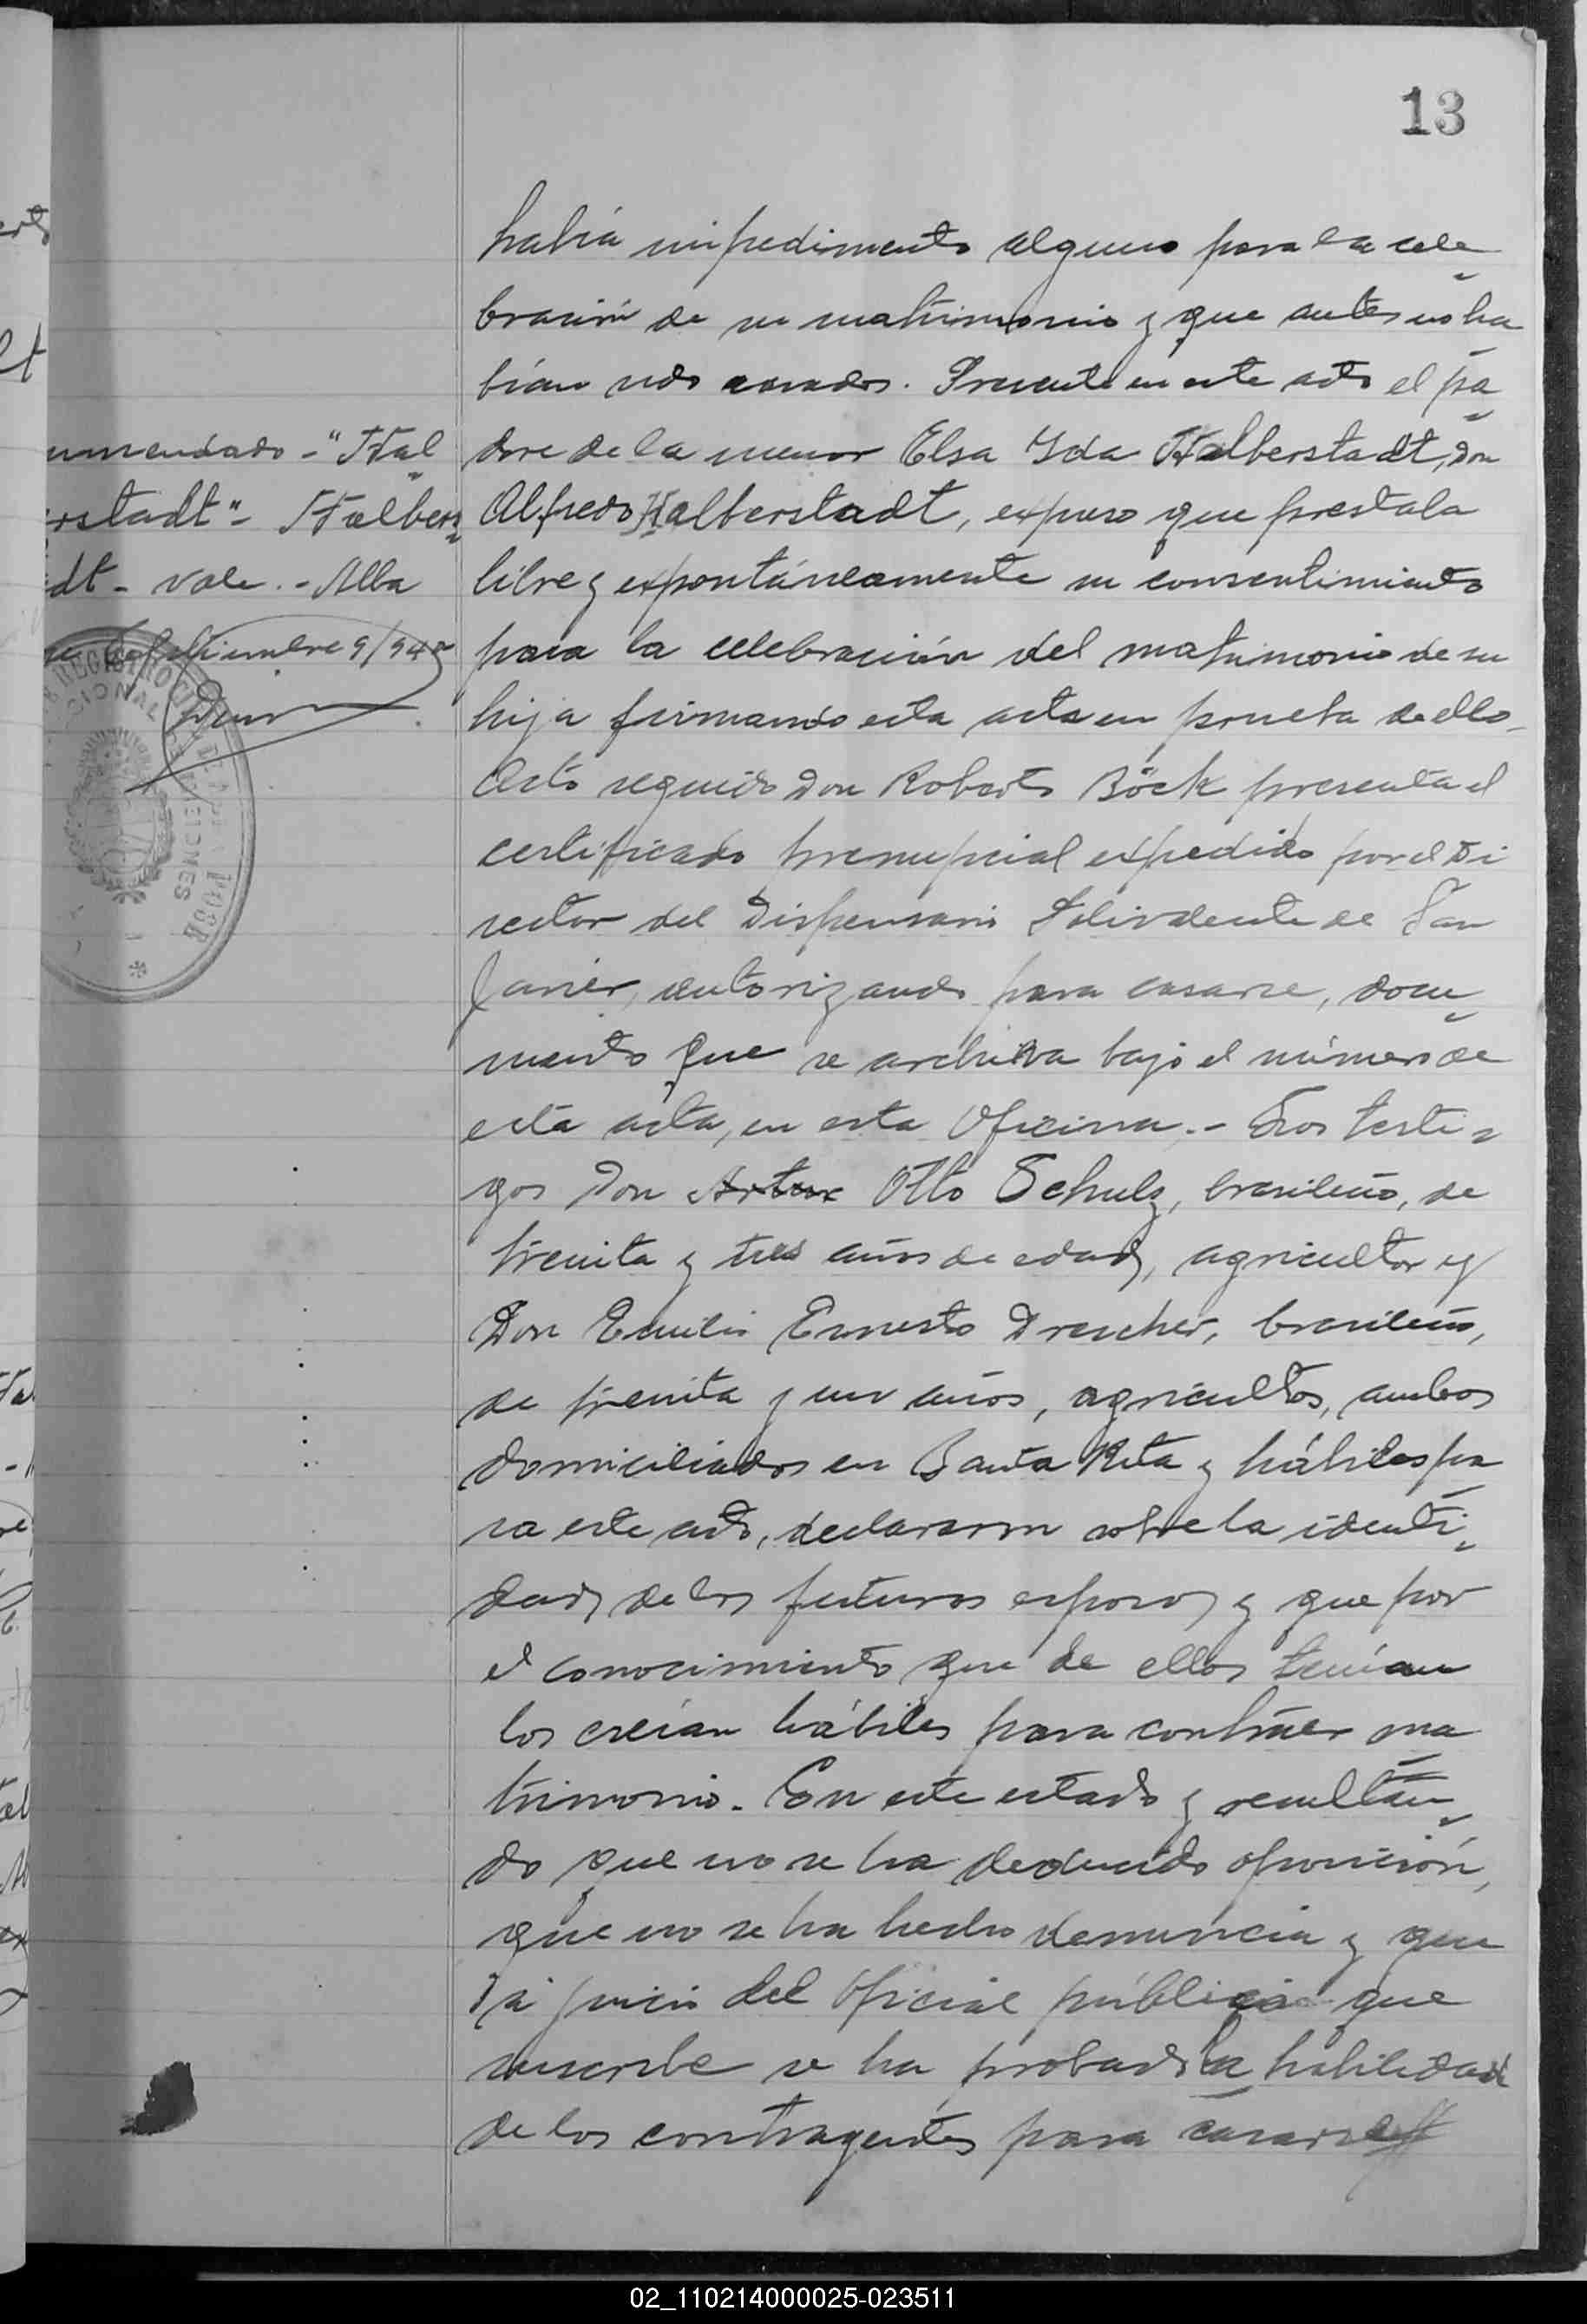 13
había impedimento alguno para la cele
bración de su matrimonio y que antes no ha
bían sido casados. Presente en este acto el pa
dre de la menor Elsa Ida Halberstadt, Don
Alfredo Halberstadt, expuso que prestala
libre y expontáneamente su consentimiento
para la celebración del matrimonio de su
hija firmando esta acta en prueba de ello -
Acto seguido Don Roberto Böck presenta el
certificado prenupcial expedido por el Di
rector del Dispensario Polivalente de San
Javier, autorizando para casarse, docu
mento que se archiva bajo el número de
esta acta, en esta Oficina. - Los testi
gos Don Artur Otto Schulz, brasileño, de
treinta y tres años de edad, agricultor y
Don Emilio Ernesto Drescher, brasileño,
de treinta y un años, agricultor, ambos
domiciliados en Santa Rita y hábiles pa
ra este acto, declararon sobre la identi
dad de los futuros esposos y que por
el conocimiento que de ellos tenían
los creían hábiles para contraer ma
trimonio. En este estado y resultan
do que no se ha deducido oposición,
que no se ha hecho denuncia y que
a juicio del oficial público que
suscribe se ha probado la habilidad
de los contrayentes para casarse
nmendado - "Hal
rstadt" - Halbers
dt - vale. - Alba
Setiembre 9/942
REGISTRO CIVIL
02_110214000025-023511